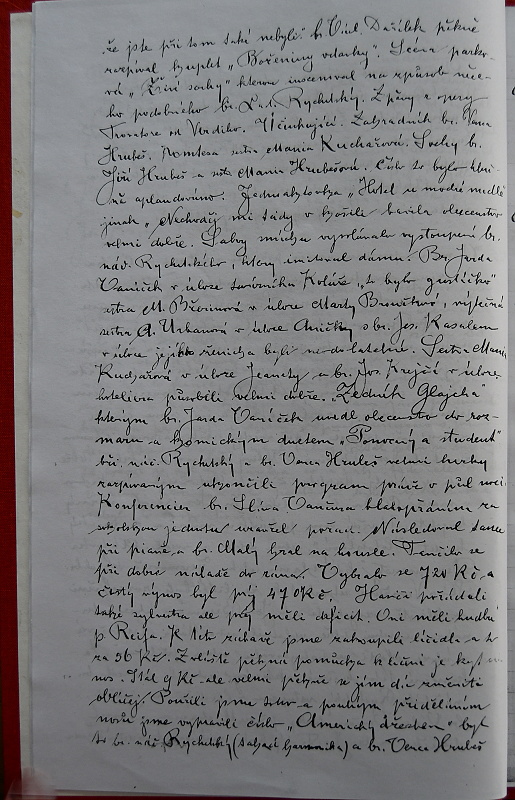 že jste při tom také nebyli" br. Vlad. Dašílek pěkně
zazpíval kuplet „Boženiny vdavky". Scéna parko-
vá „Živé sochy" kterou inscenoval na způsob něče-
ho podobného br. Lad. Rychetský. Zpěvy z opery
Trovatore od Verdiho. Účinkující. Zahradník br. Venca
Hrubeš. Komtesa sestra Mania Kuchařová. Sochy br.
Jiří Hrubeš a sest. Mania Hrubešová. Číslo to bylo kruš-
ně aplaudováno. Jednoaktovka „Hotel u modré mandle
jinak „Nechoďte mi tády v košile bavila obecenstvo
velmi dobře. Salvy smíchu vyvolávalo vystoupení br.
náč. Rychetského, který imitoval dámu. Br. Jarda
Vaníček v úloze továrníka Koláře „to bylo gustíčko"
sestra M. Březinová v úloze Marty Brovitové, výtečná
sestra A. Urbanová v úloze Aničky s br. Jos. Kasalem
v úloze jejího ženicha byli nedostatelní. Sestra Mania
Kuchařová v úloze Jeanety a br. Jos. Krejčí v úloze
hoteliera působili velmi dobře. „Zedník Glajcha"
kterým br. Jarda Vaníček uvedl obecenstvo do roz-
maru a komickým duetem „Ponocný a student"
bří. náč. Rychetský a br. Venca Hrubeš velmi hezky
zazpívaným ukončili program právě v půl noci
Konferencier br. Sláva Vančura blahopřáním za
jednotu uzavřel pořad. Následoval tanec
při pianě a br. Malý hral na housle. Tančilo se
při dobré náladě do rána. Vybralo se 720 Kč. a
čistý výnos byl prý 470 Kč. Hasiči pořádali
také sylvestra ale prý měli deficit. Oni měli hudbu
p. Reisa. K této zábavě jsme zakoupili líčidla a to
za 56 Kč. Zvláště pěkná pomůcka k líčení je
nos. Stál 9 Kč. ale velmi pěkně se jím dá změnit
obličej. Použili jsme toho a pouhým přiděláním
nosu jsme vypravili číslo „Americký džesbem" byl
to br. náč. Rychetský (tahací harmonika) a br. Venca Hrubeš